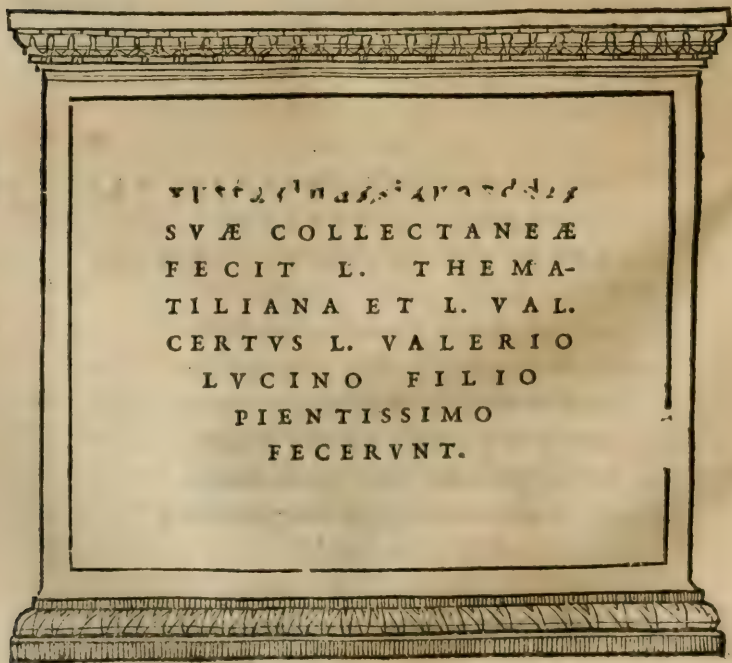 SVÆ COLLECTANEÆ
FECIT L. THEMA-
TILIANA ET L. VAL.
CERTVS L. VALERIO
LVCINO FILIO
PIENTISSIMO
FECERVNT.